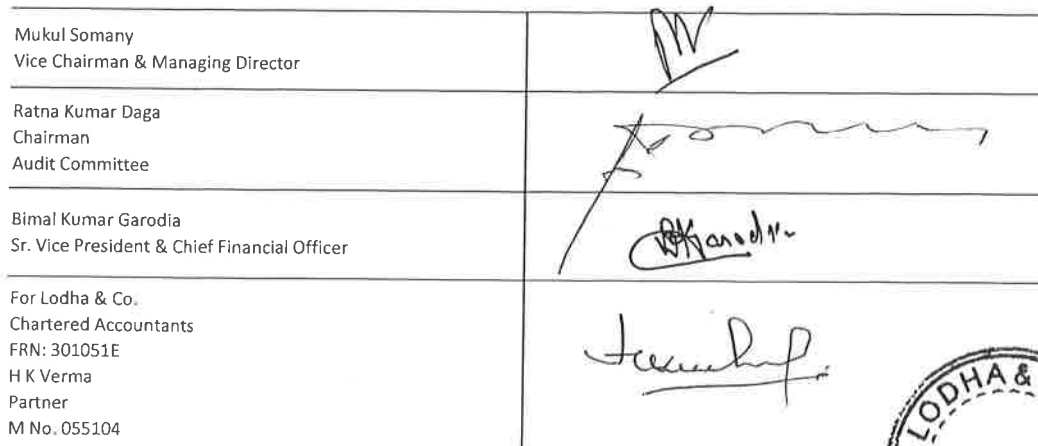 Mukul Somany
Vice Chairman & Managing Director
Ratna Kumar Daga
Chairman
Audit Committee
Bimal Kumar Garodia
Sr. Vice President & Chief Financial Officer
BKGarodia
For Lodha & Co.
Chartered Accountants
FRN: 301051E
H K Verma
Partner
M No. 055104
LODHA &